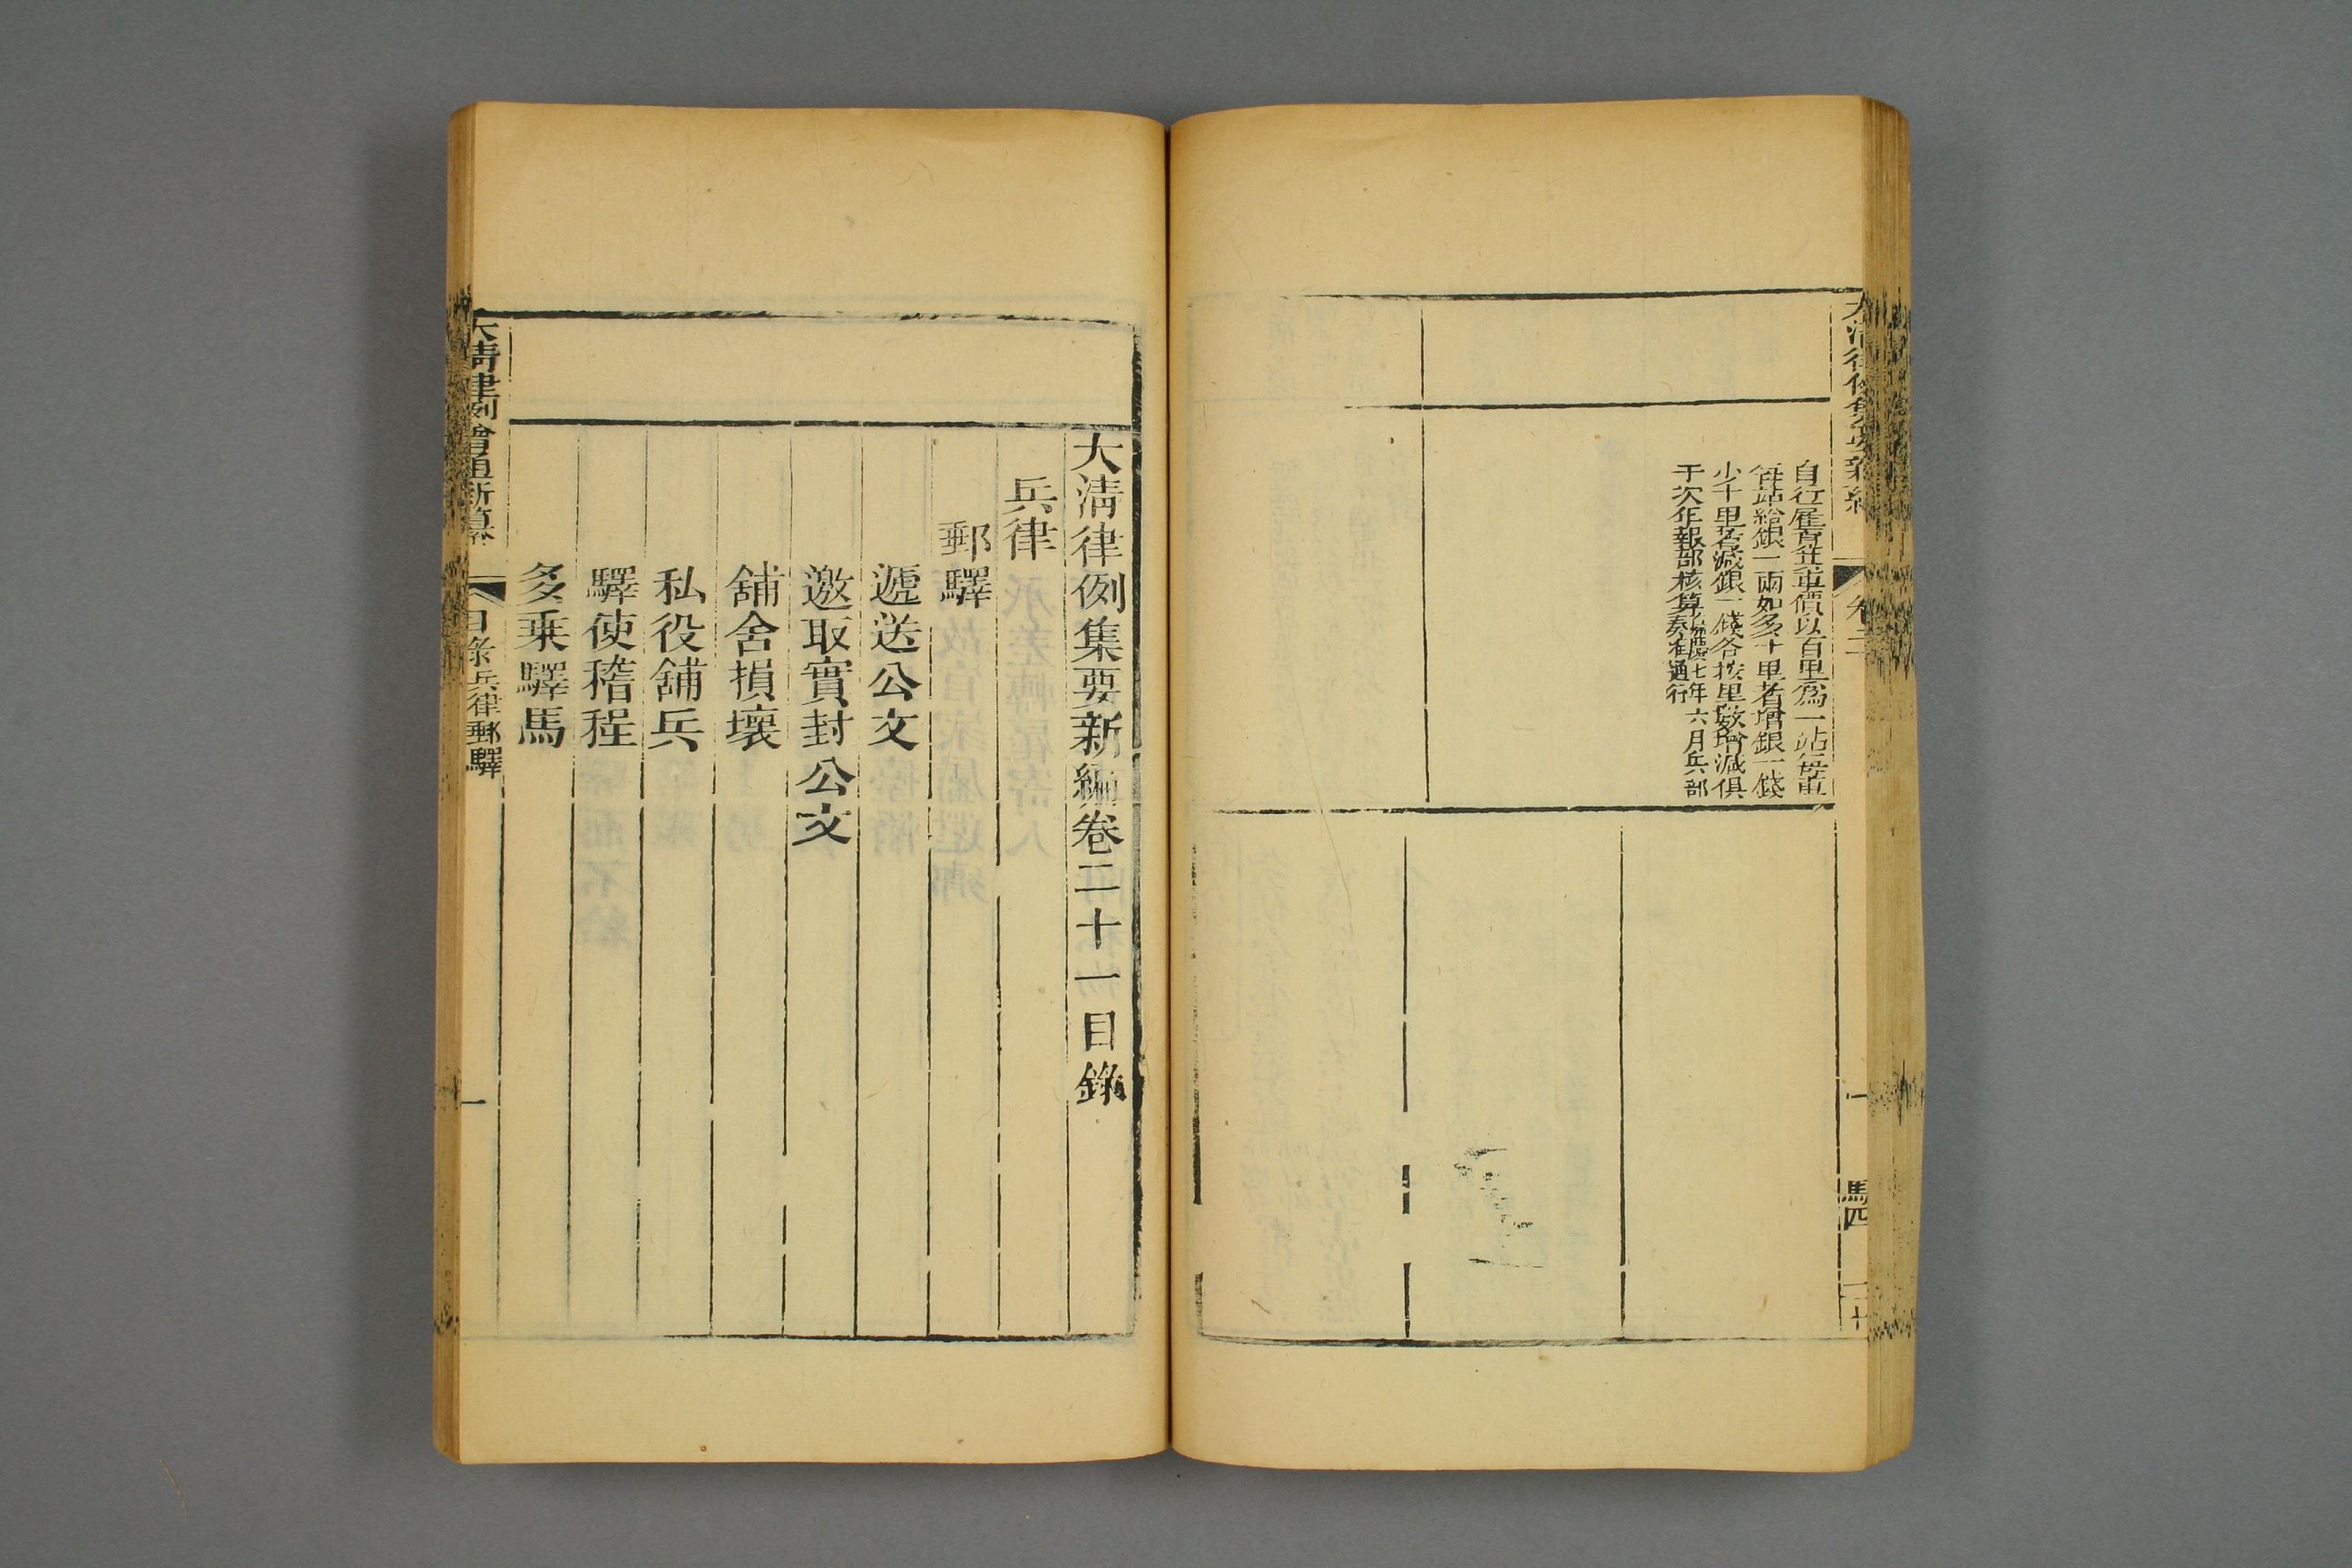 自行雇覓往車價以百里爲一站每車
每站給銀一兩如多十里者增銀一錢
少十里者減銀一錢各按里數增減俱
于次年報部核算奏准通行
七年六月兵部
卷二
馬四
大淸律例集要新編卷二十一目錄
兵律
郵驛
遞送公文
邀取實封公文
舖舍損壞
私役舖兵
驛使稽程
多乗驛馬
大淸律例會通新纂
目錄 兵律郵驛
一